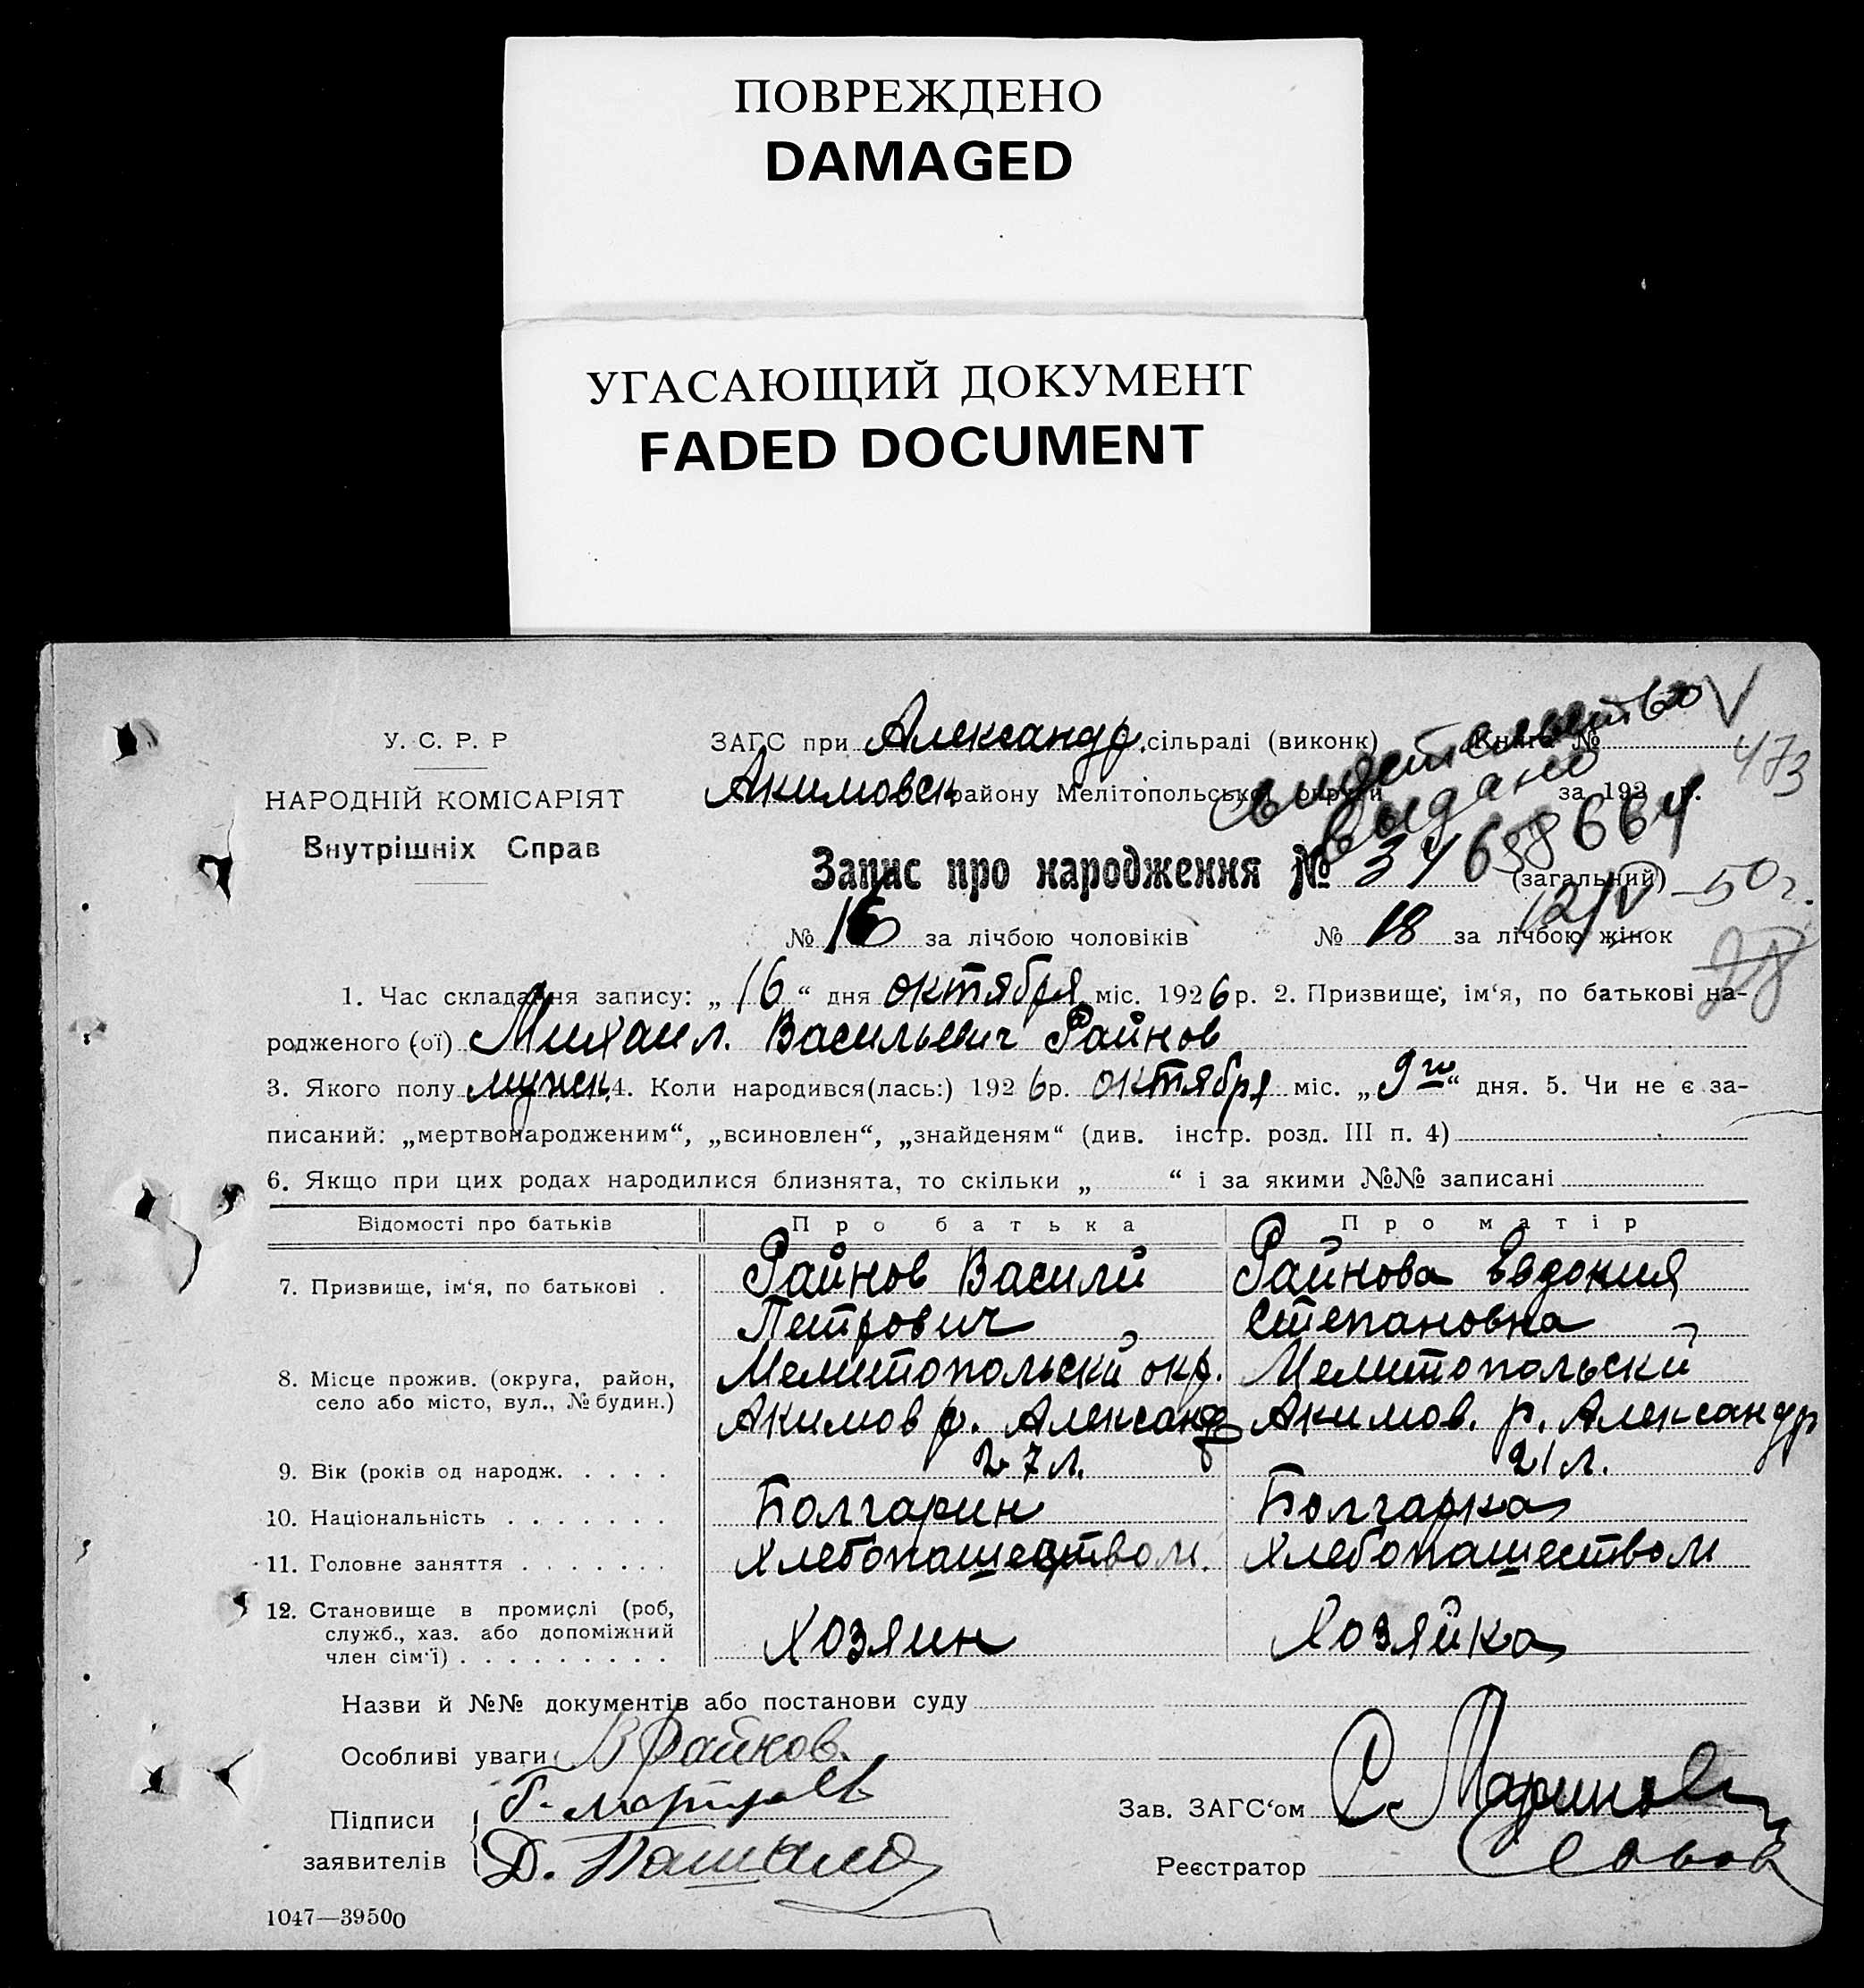 ПОВРЕЖДЕНО
DAMAGED
УГАСАЮЩИЙ ДОКУМЕНТ
FADED DOCUMENT
У. С. Р. Р
НАРОДНІЙ КОМІСАРІЯТ
Внутрішніх Справ
ЗАГС при Александр. сільраді (виконк) Книга №
Акимовск району Мелітопольської округи за 192 р.
видетельство
выдано
473
Запис про народження № 34 (загальний)
658664
12/IV – 50 г.
№ 16 за лічбою чоловіків № 18 за лічбою жінок
28
1. Час складання запису: „16“ дня октября міс. 1926 р. 2. Призвище, ім‘я, по батькові на-
родженого (ої) Михаил. Васильевич Райнов
3. Якого полу мужск. 4. Коли народився(лась:) 1926 р. октября міс. „9го“ дня. 5. Чи не є за-
писаний: „мертвонародженим“, „всиновлен“, „знайденям“ (див. інстр. розд. III п. 4)
6. Якщо при цих родах народилися близнята, то скільки „ “ і за якими №№ записані
Відомості про батьків Про батька Про матір
7. Призвище, ім‘я, по батькові . Райнов Васили Райнова Евдокия
Петрович Степановна
8. Місце прожив. (округа, район, Мелитопольски окр. Мелитопольски
село або місто, вул., № будин.) Акимов р. Александр Акимов. р. Александр
9. Вік (років од народж. . . . . 27 л. 21 л.
10. Національність . . . . . . . Болгарин Болгарка
11. Головне заняття . . . . . . . Хлебопашеством. Хлебопашеством
12. Становище в промислі (роб,
служб., хаз. або допоміжний
член сім‘ї) . . . . . . . . . Хозяин Хозяйка
Назви й №№ документів або постанови суду
Особливі уваги В Райнов.
Підписи
заявителів Д.
Зав. ЗАГС‘ом С. Маринов
Реєстратор Савов
1047—39500